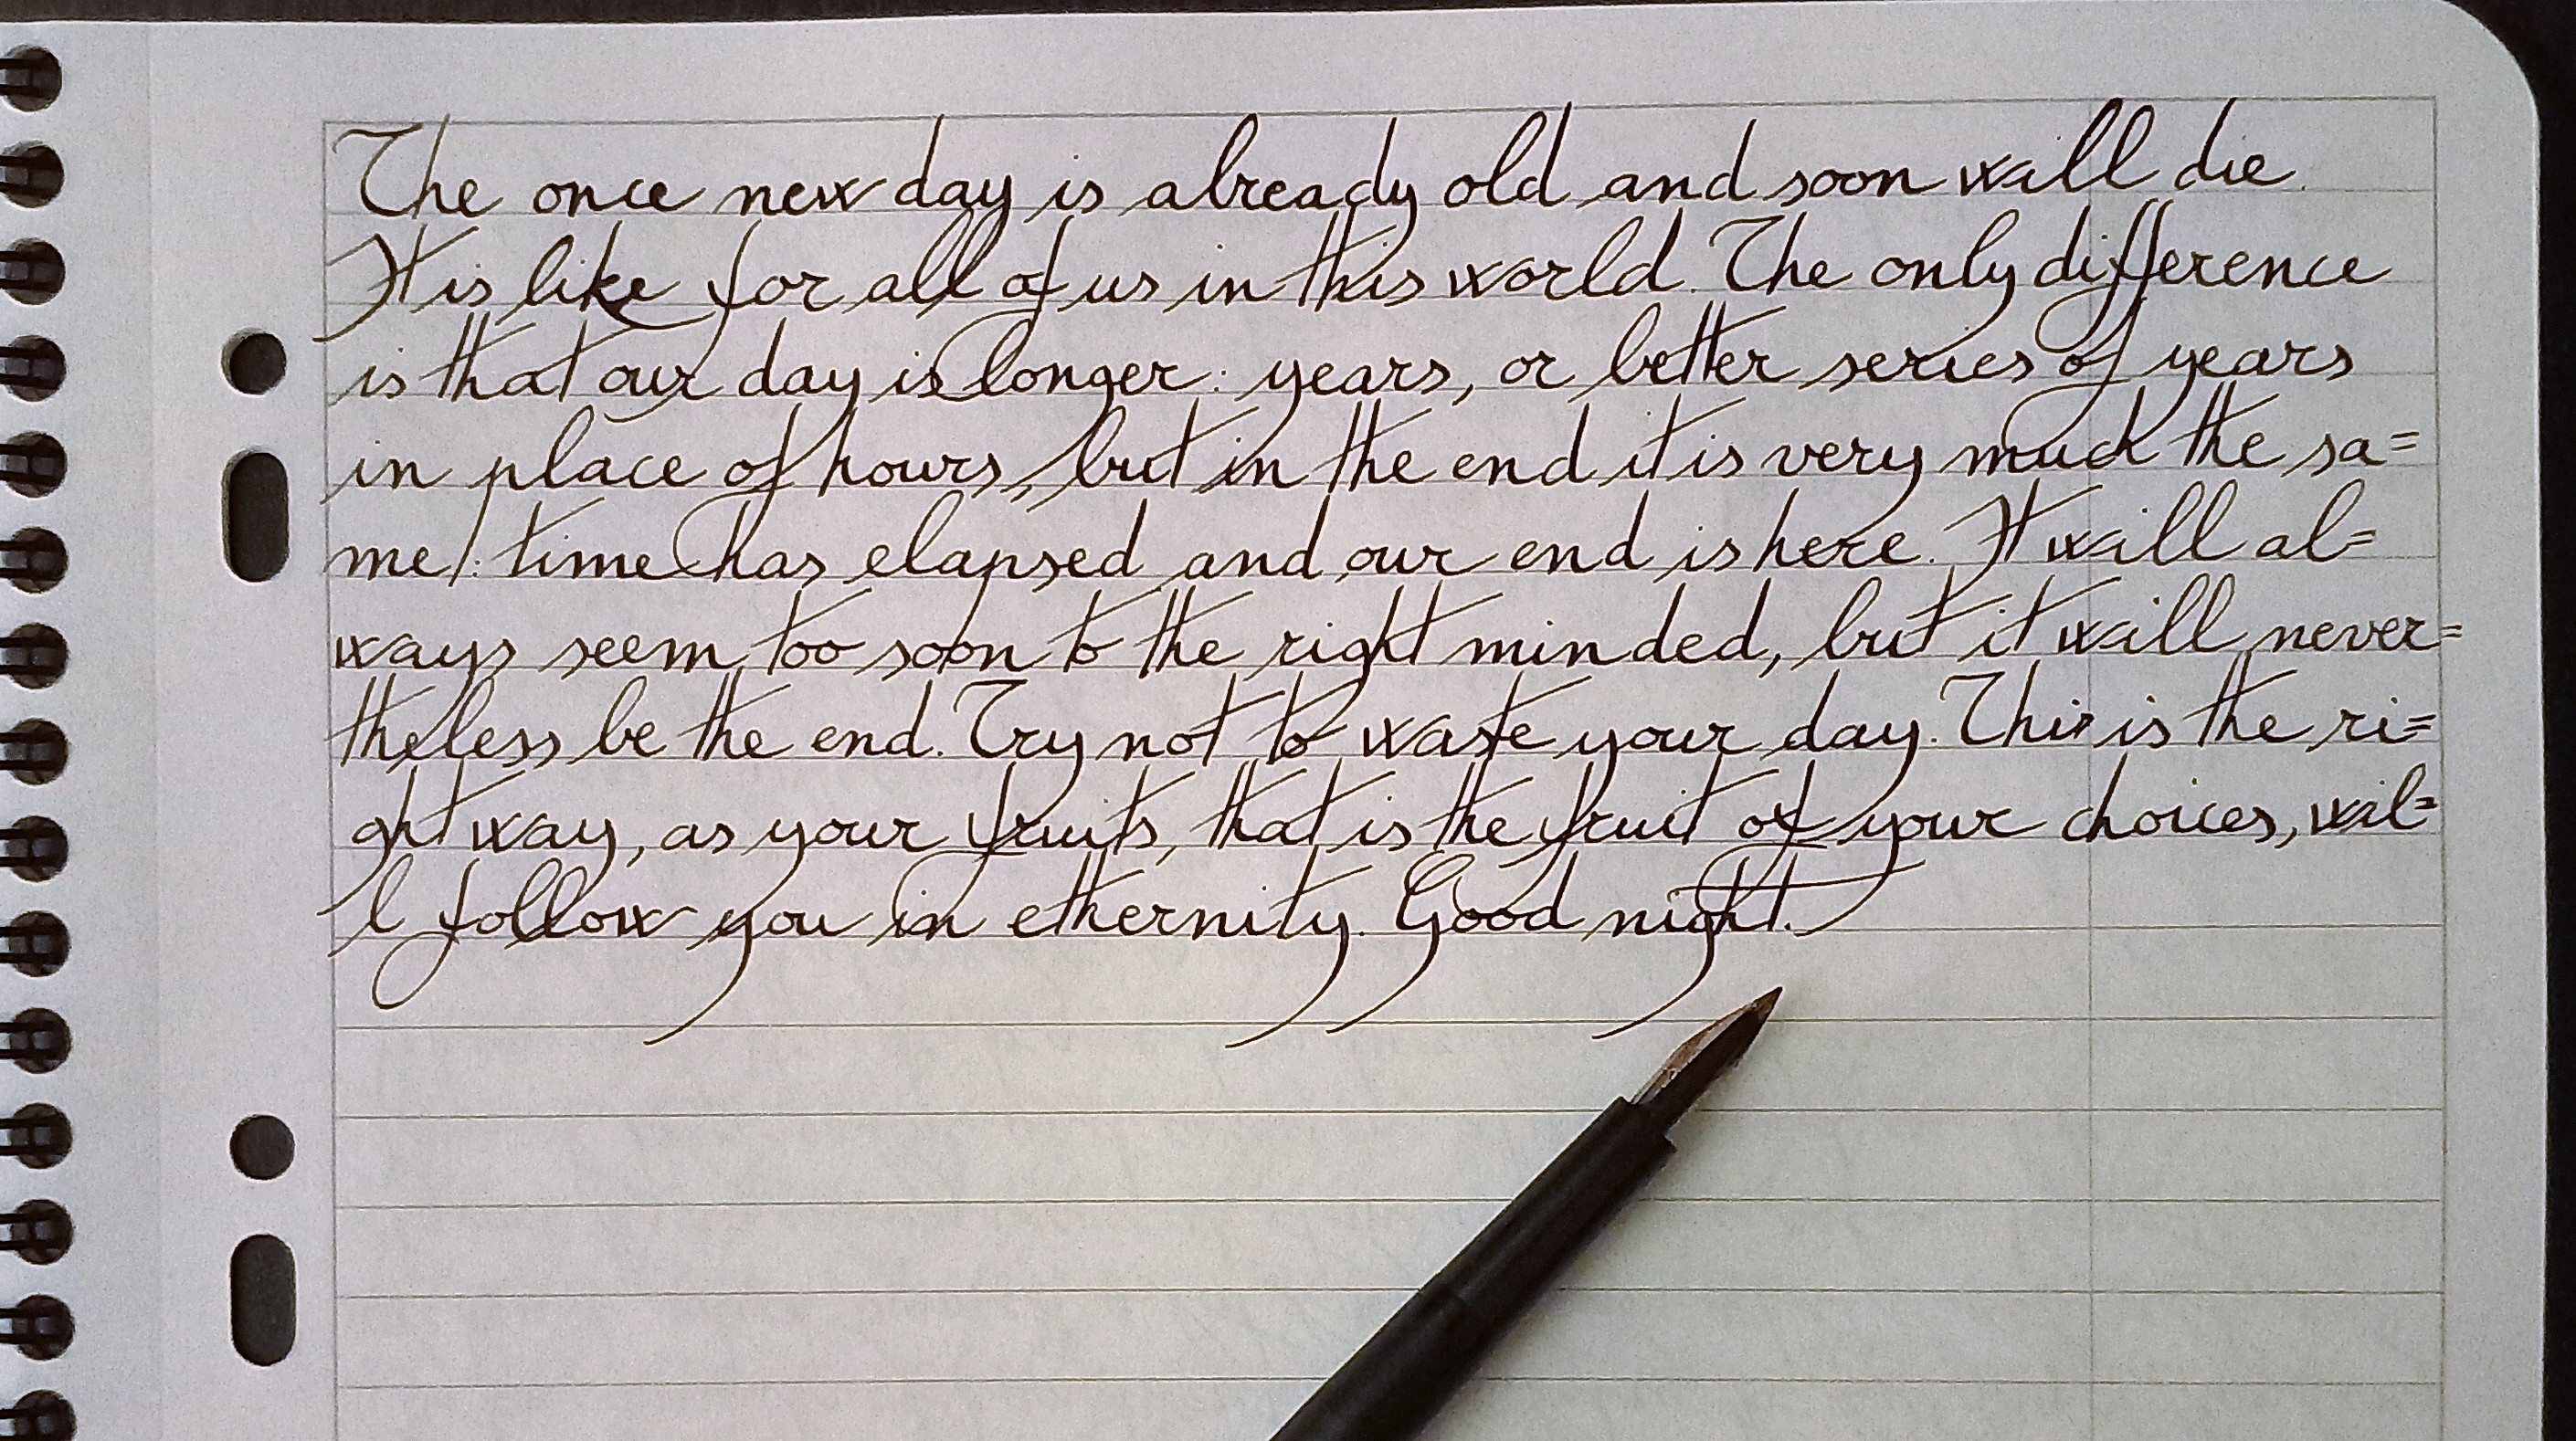 The once new day is already old and soon will die.
It is like for all of us in this world. The only difference
is that our day is longer: years, or better series of years
in place of hours, but in the end it is very much the sa=
me: time has elapsed and our end is here. It will al=
ways seem too soon to the right minded, but it will never=
theless be the end. Try not to waste your day. This is the ri=
ght way, as your fruits, that is the fruit of your choices, wil=
l follow you in ethernity. Good night.